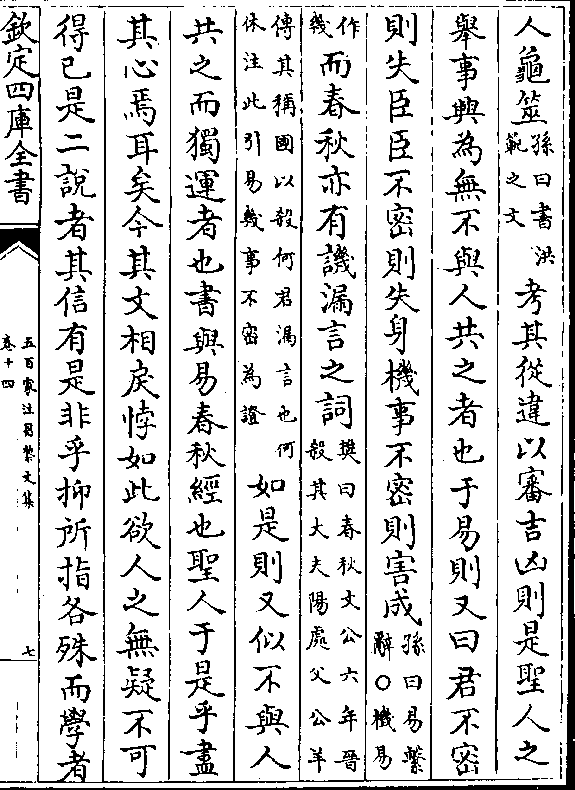 人龜筮孫曰書洪範之文考其從違以審吉凶則是聖人之
舉事興為無不與人共之者也于易則又曰君不密
則失臣臣不密則失身機事不密則害成孫曰易繫辭○機易
作幾而春秋亦有譏漏言之詞樊曰春秋文公六年晉殺其大夫陽處父公羊
傳其稱國以殺何君漏言也何休注此引易幾事不密為證如是則又似不與人
共之而獨運者也書與易春秋經也聖人于是乎盡
其心焉耳矣今其文相戾悖如此欲人之無疑不可
得已是二說者其信有是非乎抑所指各殊而學者
欽定四庫全書
五百家注昌黎文集
卷十四
七